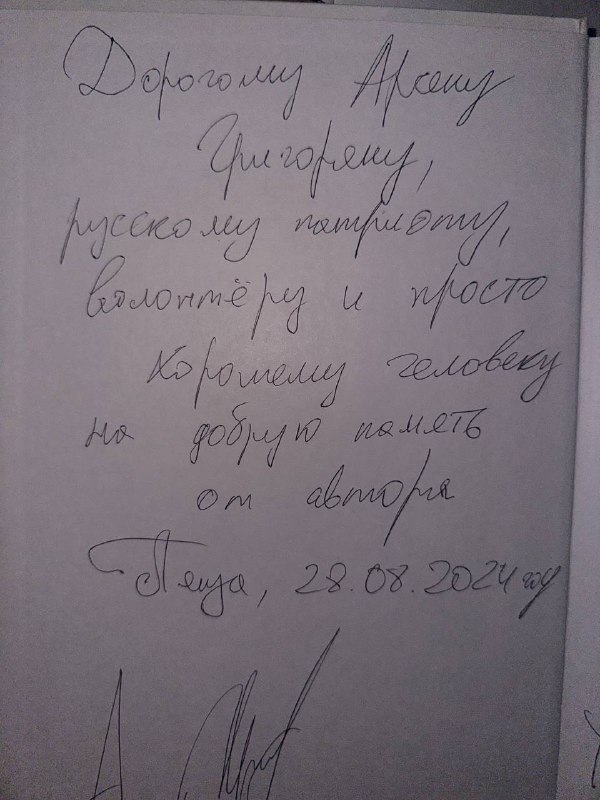 Дорогому Арсену
Григоряну,
русскому патриоту,
волонтёру и просто
хорошему человеку
на добрую память
от автора
Пенза, 28.08.2024 год